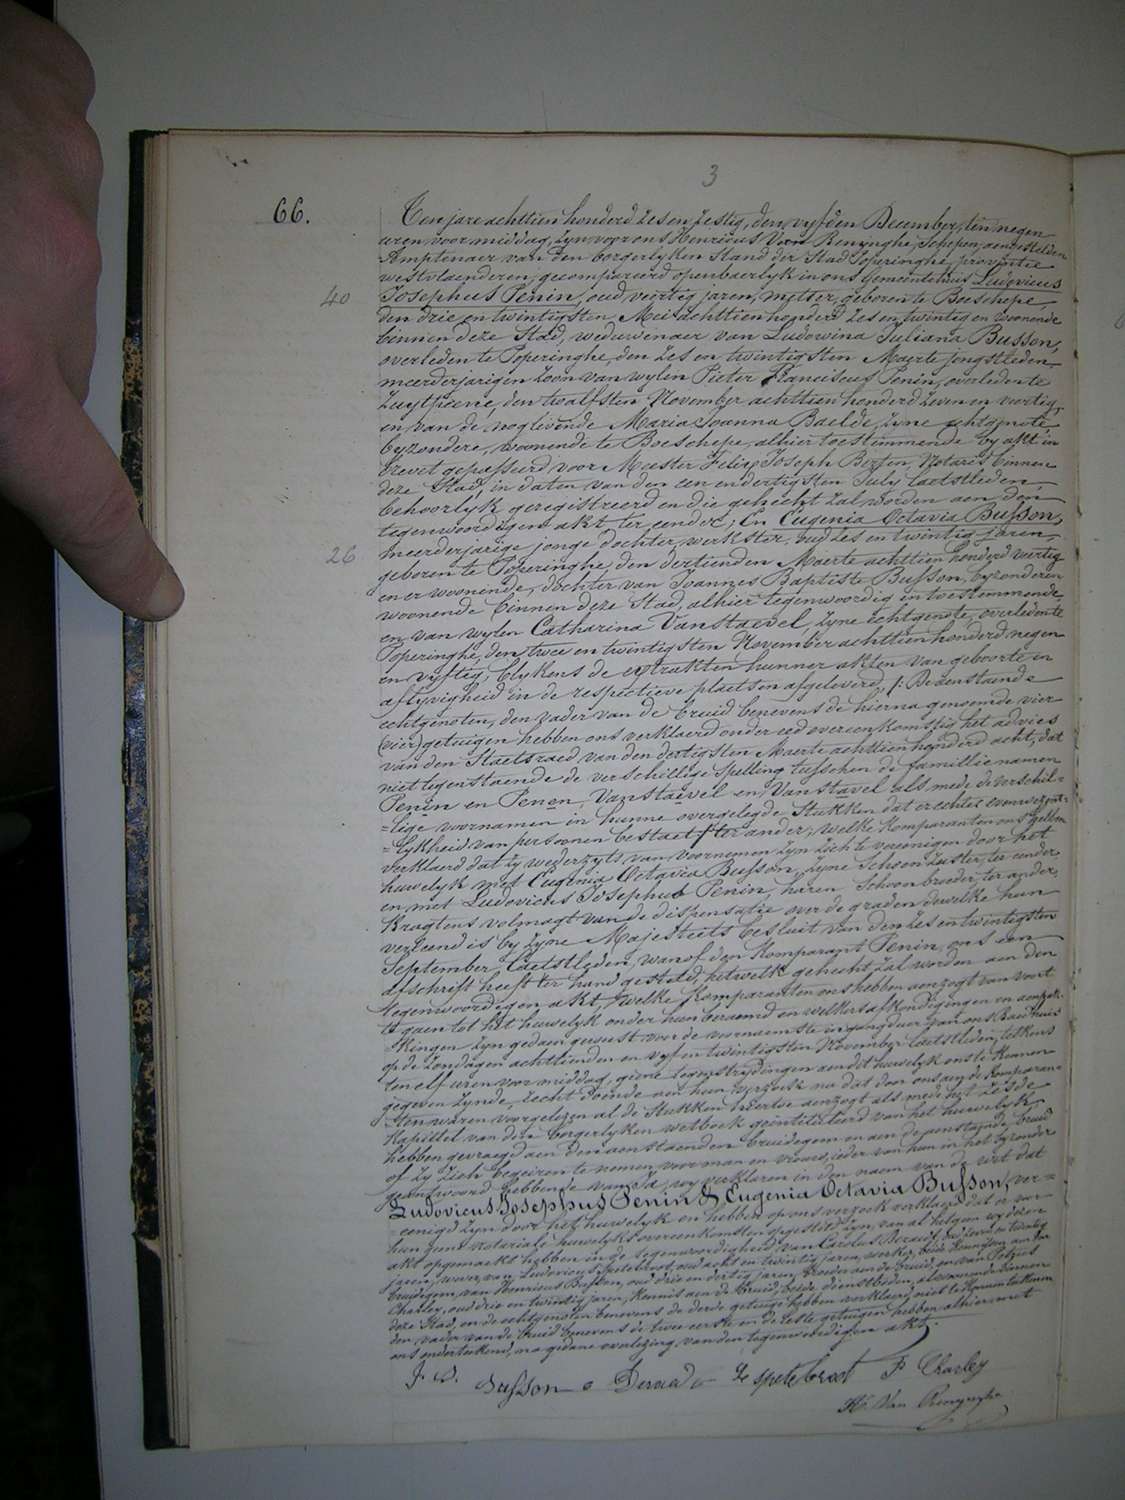 3
66.
Ten jare achttien honderd zes en zestig, den vyfden December, ten negen
uren voor middag, zyn voor ons Henricus Van Renynghe, Schepen, aengestelden
Amptenaer van den borgerlyken Stand der Stad Poperinghe, provintie
westvlaenderen, gecompareerd openbaerlyk in ons Gemeentehuis Ludovicus
40
Josephus Penin, oud veertig jaren, metser, geboren te Boeschepe,
den drie en twintigsten Mei achttien honderd zes en twintig en woonende
binnen deze Stad, weduwenaer van Ludowina Juliana Busson,
overleden te Poperinghe, den zes en twintigsten Maerte jongstleden,
meerderjarigen zoon van wylen Pieter Franciscus Penin, overleden te
Zuytpeene, den twalfsten November achttien honderd zeven en veertig,
en van de noglevende Maria Joanna Baelde, zyne echtgenote,
byzondere, woonende te Boeschepe, alhier toestemmende by akt in
brevet gepasseerd voor Meester Felix Joseph Berten, Notaris binnen
deze Stad, in daten van den een en dertigsten July laetstleden,
behoorlyk geregistreerd en die gehecht zal worden aen den
tegenwoordigen akt, ter eender; En Eugenia Octavia Busson,
26
meerderjarige jonge dochter, werkster, oud zes en twintig jaren,
geboren te Poperinghe, den dertienden Maerte achttien honderd veertig
en er woonende, dochter van Joannes Baptiste Busson, byzonderen
woonende binnen deze Stad, alhier tegenwoordig en toestemmende,
en van wylen Catharina Vanstaevel, zyne echtgenote, overleden te
Poperinghe, den twee en twintigsten November achttien honderd negen
en vyftig, blykens de extrakten hunner akten van geboorte en
aflyvigheid in de respectieve plaetsen afgeleverd. /: De aenstaende
echtgenoten, den vader van de bruid benevens de hierna genoemde vier
(vier) getuigen hebben ons verklaerd onder eed overeenkomstig het advies
van den Staetsraed, van den dertigsten Maerte achttien honderd acht, dat
niet tegenstaende de verschillige spelling tusschen de famillie namen
Penin en Penen, Vanstaevel en Vanstavel als mede de verschil-
-lige voornamen in hunne overgelegde Stukken dat er echter eenweezent-
-lykheid van persoonen bestaet /: ter ander; welke komparanten ons hebben
verklaerd dat zy wederzyts van voornemen zyn zich te vereenigen door het
huwelyk met Eugenia Octavia Busson, zyne schoonzuster, ter eender,
en met Ludovicus Josephus Penin, haren schoonbroeder, ter ander,
kragtens volmagt van de dispensatie over de graden dewelke hun
verleend is by zyne Majesteits besluit van den zes en twintigsten
September laetstleden, waerof den komparant Penin, ons een
afschrift heeft ter hand gesteld, hetwelk gehecht zal worden aen den
tegenwoordigen akt, welke komparanten ons hebben aenzogt van voort
te gaen tot het huwelyk onder hun beraemd en welkers afkondigingen en aenplak-
-kingen zyn gedaen geweest voor de voornaemste ingangdeur van ons Raedhuis
op de zondagen achttienden en vyf en twintigsten November laetstleden, telkens
ten elf uren voor middag, geene tegenstrydingen aen dit huwelyk ons te kennen
gegeven zynde, recht doende aen hun verzoek na dat door ons aen de komparan-
-ten waren voorgelezen al de Stukken hiertoe aenzogt als mede het zesde
kapittel van den borgerlyken wetboek geïntituleerd van het huwelyk,
hebben gevraegd aen den aenstaenden bruidegom en aen de aenstaende bruid
of zy zich begeiren te nemen voor man en vrouw, ieder van hun in het byzonder
geantwoord hebbende van Ja, wy verklaren in den naem van de wet dat
Ludovicus Josephus Penin & Eugenia Octavia Busson, ver-
-eenigd zyn door het huwelyk en hebben op ons verzoek verklaerd dat er voor
hun geene notariale huwelyks overeenkomsten vastgesteld zyn, van al hetgeen wy dezen
akt opgemaekt hebben in de tegenwoordigheid van Carolus Deraedt, oud zeven en twintig
jaren, wever, van Ludovicus Spetebroot, oud acht en twintig jaren, werker, beide kennissen aen den
bruidegom, van Henricus Busson, oud drie en dertig jaren, broeder aen de bruid, en van Petrus
Charley, oud drie en twintig jaren, kennis aen de bruid, beide dienstboden, alwaerende binnen
deze Stad, en de echtgenoten benevens de derde getuige hebben verklaerd niet te konnen teekenen
den vader van de bruid benevens de twee eerste en de leste getuigen hebben alhier met
ons onderteekend, na gedane overlezing, van den tegenwoordigen akt.
J. B. Busson C Deraedt L Spetebroot P Charley
H. Van Renynghe